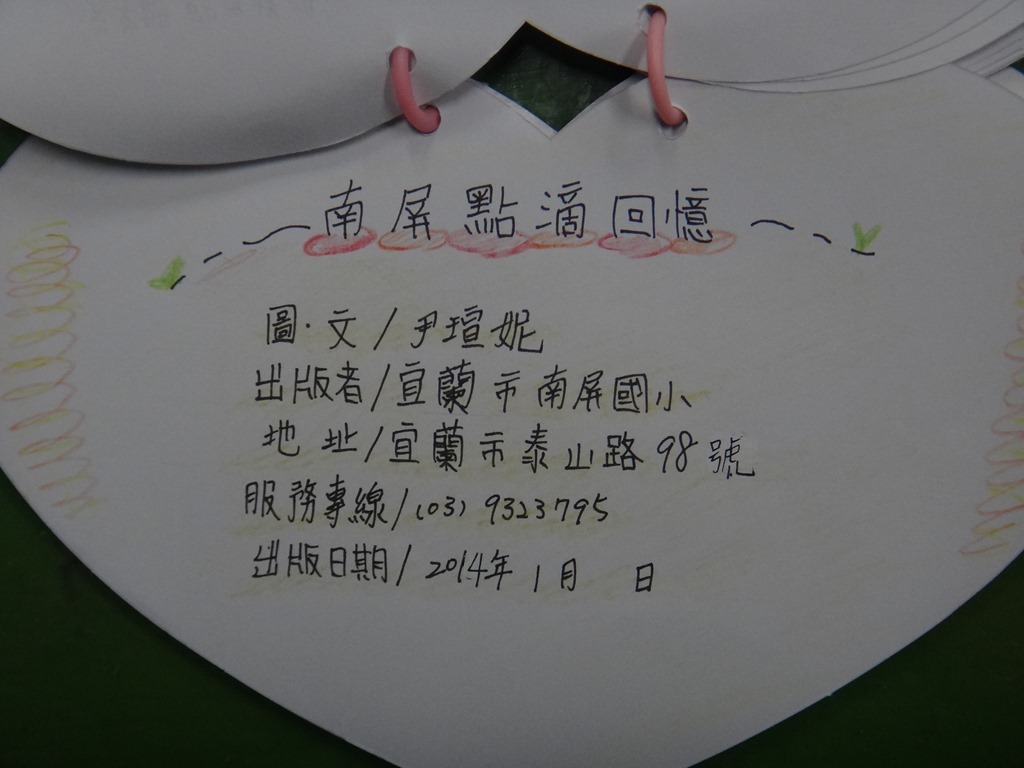 南屏點滴回憶
圖·文/尹瑄妮
出版者/宜蘭市南屏國小
地址/宜蘭市泰山路98號
服務專線/(03)9323795
出版日期/2014年1月 日